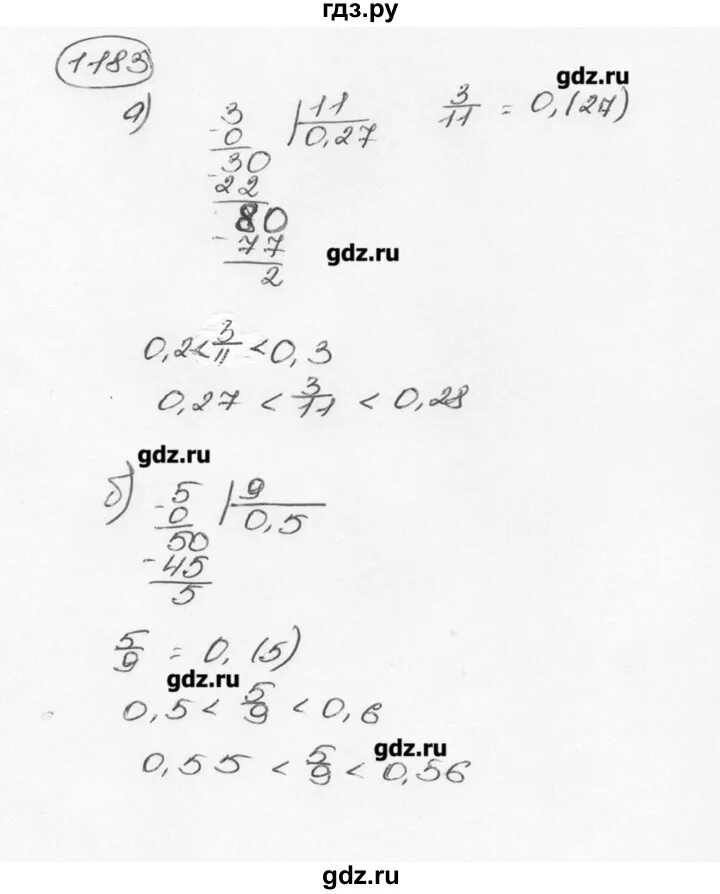 гдз.ру
1183
gdz.ru
а)
3 | 11
- 0 0,27
30
- 22
80
- 77
2
3/11 = 0,(27)
gdz.ru
0,2 < 3/11 < 0,3
0,27 < 3/11 < 0,28
gdz.ru
б)
- 5 | 9
0 0,5
50
- 45
5
5/9 = 0,(5)
gdz.ru
0,5 < 5/9 < 0,6
gdz.ru
0,55 < 5/9 < 0,56
gdz.ru